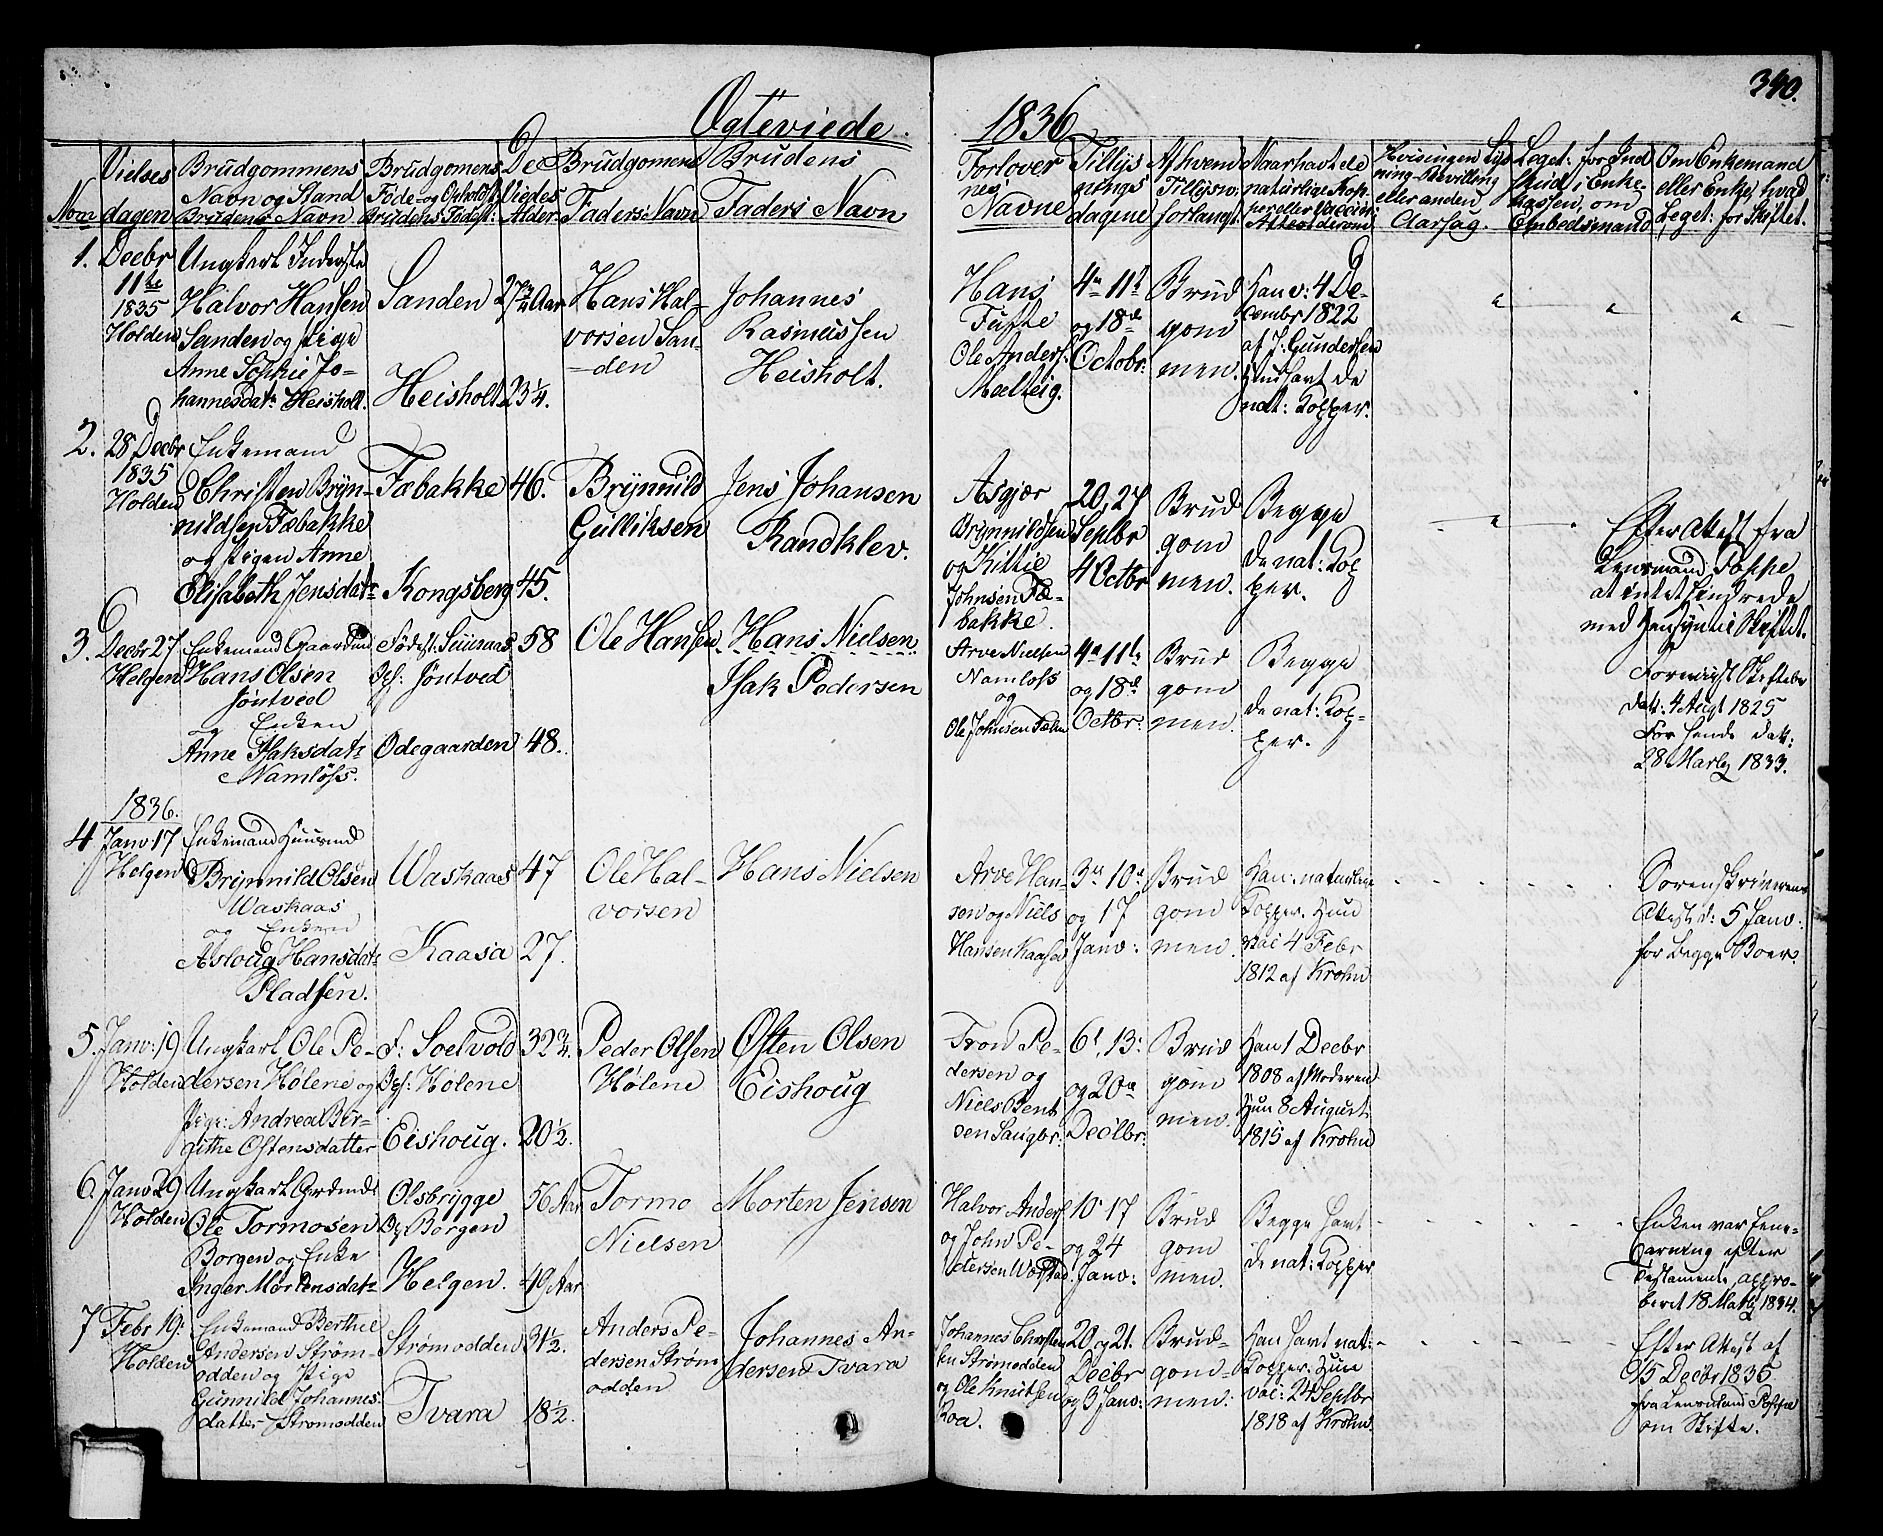 340.
Ægteviede. 1836
Nom
Vielses dagen
Brudgommens Navn og Stand Brudens Navn
Brudgomens Føde- og Opholdst: Brudens Fødest:
De Viedes Alder
Brudgomens Faders Navn
Brudens Faders Navn
Forlover nes Navne
Tillys nings dagene
Af hvem Tillysn: forlangt
Naar havt de naturlige Kop per eller Vaccin: Attest derom
Hvis ingen Lys ning Bevilling eller anden Aarsag.
Leget: for Ind skud i Enke Kassen, om Embedsmand
Om Enkemand eller Enke, hvad Leget: for Skiftet.
1.
Decbr
11te
1835
Holden
Ungkarl Inderste
Halvor Hansen
Sanden og Pige
Anne Sophie Jo-
hannesdatr Heisholt.
Sanden
Heisholt
27 1/2 Aar
23 1/4.
Hans Hal-
vorsen San-
-den
Johannes
Rasmussen
Heisholt.
Hans
Tufte
Ole Anders:
Mælteig.
4de 11te
og 18de
Octobr:
Brud
gom
men.
Han v: 4 De-
cembr 1822
af J: Gundersen
Hun havt de
nat: Kopper.
2.
28 Decbr
1835
Holden
Enkemand
Christen Bryn-
nildsen Fæbakke
og Pigen Anne
Elisabeth Jensdatr
Fæbakke
Kongsberg
46.
45.
Brynnild
Gulliksen
Jens Johansen
Randklev.
Asgjær
Brynnildsen
og Kittil
Johnsen Fæ-
bakke.
20, 27
Septbr
4 Octbr
Brud
gom
men.
Begge
de nat: Kop
per.
Efter Attest fra
Lensmand Poppe
at intet hindrede
med Hensyn til Skiftet.
3.
Decbr 27
Helgen
Enkemand Gaardmd
Hans Olsen
Jøntved
og Enken
Anne Isaksdatr
Namløss.
Fødest: Suusaas
Oph: Jøntved
Ødegaarden
58
48.
Ole Hansen
Hans Nielsen
Isak Pedersen
Arve Nielsen
Namløss
og
Ole Johnsen
4de 11te
og 18de
Octbr:
Brud
gom
men.
Begge
de nat: Kop-
per.
Forevist Skiftebr
dat: 4 Augt 1825
For hende dat:
28 Marts 1833.
1836.
4
Janv 17
Helgen
Enkemand Huusmd
Brynnild Olsen
Waskaas
og Enken
Asloug Hansdatr
Pladsen.
Waskaas
Kaasa
47
27.
Ole Hal-
vorsen
Hans Nielsen
Arve Han-
sen og Niels
Hansen Kaasen
3de 10de
og 17
Janv:
Brud
gom
men.
Han: naturlige
Kopper. Hun
vac 4 Febr
1812 af Krohn
Sorenskriverens
Attest d: 5 Janv:
for begge Boer.
5.
Janv: 19
Holden
Ungkarl Ole Pe-
dersen Hølene og
Pige: Andrea Bir-
githe Ostensdatter
F: Soelvold
Oph: Hølene
Eishoug.
32 3/4.
20 1/2.
Peder Olsen
Hølene
Østen Olsen
Eishoug
Tron Pe-
dersen og
Niels Bent
sen Saugbr:
6t, 13:
og 20de
Decbr:
Brud
gom
men.
Han 1 Decbr
1808 af Moderen
Hun 8 August
1815 af Krohn
6.
Janv 29
Holden
Ungkarl Grdmd:
Ole Tormosen
Borgen og Enke
Inger Mortensdatr
Olsbrygge
Oph Borgen
Helgen.
56 Aar
49 Aar
Tormo
Nielsen
Morten Jensen
Halvor Anders
og John Pe-
dersen
10 17
og 24
Janv:
Brud
gom
men.
Begge havt
de nat: Kopper
Enken var
efter
Testamente, appro-
beret 18 Marts 1834.
7
Febr 19:
Holden
Enkemand Berthel
Andersen Strøm-
odden og Pige
Gunnild Johannes-
datter Strømodden
Strømodden
Tvara
31 1/2.
18 1/2.
Anders Pe-
dersen Strøm
odden
Johannes An-
dersen Tvara
Johannes Christen
sen Strømodden
og Ole Knutsen
Roa.
20 og 21.
Decbr
og 3 Janv:
Brud-
gom-
men.
Han havt nat:
Kopper. Hun
vac: 24 Septbr
1818 af Krohn
Efter Attest af
15 Decbr 1835
fra Lensmand Poppe
om Skifte.